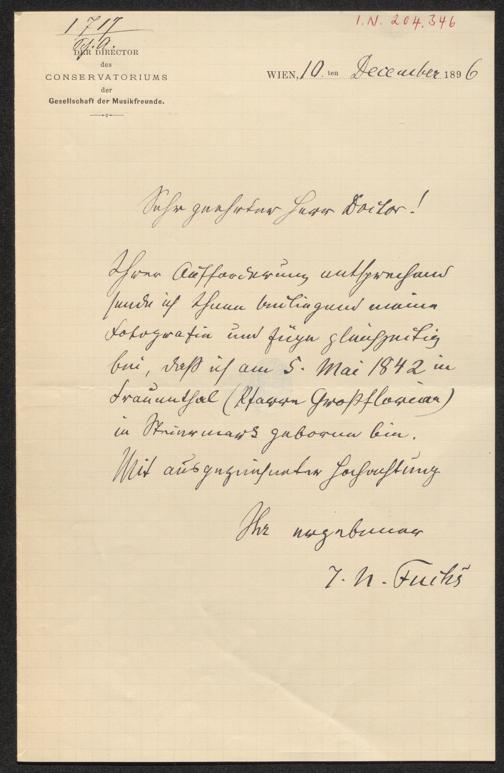 I.N. 204.346
1717
DER DIRECTOR
des
CONSERVATORIUMS
der
Gesellschaft der Musikfreunde.
WIEN, 10. ten December 1896
Sehr geehrter Herr Doctor!
Ihrer Aufforderung entsprechend
sende ich Ihnen beiliegend meine
Fotografie und füge gleichzeitig
bei, daß ich am 5. Mai 1842 in
Frauenthal (Pfarre Großflorian)
in Steiermark geboren bin.
Mit ausgezeichneter Hochachtung
Ihr ergebener
J. N. Fuchs